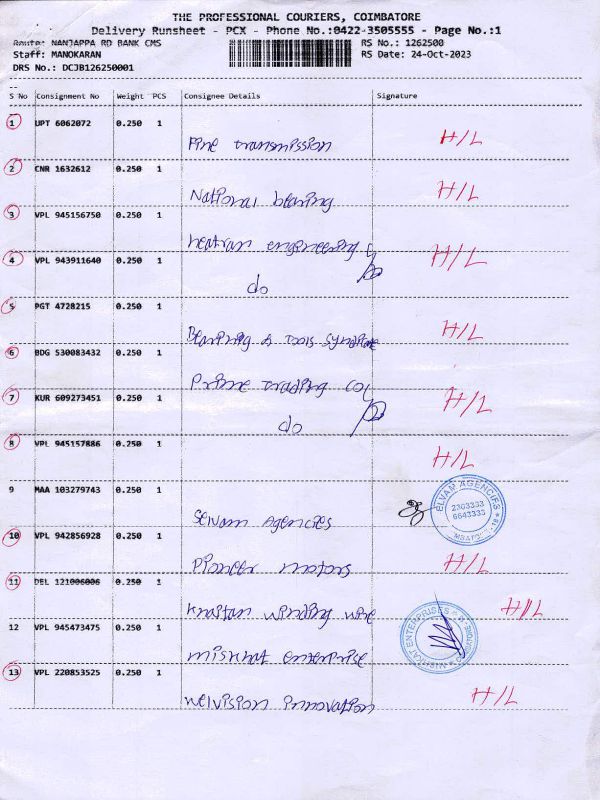 THE PROFESSIONAL COURIERS, COIMBATORE
Delivery Runsheet - PCX - Phone No.:0422-3505555 - Page No.:1
Route: NANJAPPA RD BANK CMS RS No.: 1262500
Staff: MANOKARAN RS Date: 24-Oct-2023
DRS No.: DCJB126250001
S No Consignment No Weight PCS Consignee Details Signature
1 UPT 6062072 0.250 1
Pine transmission H/L
2 CNR 1632612 0.250 1
National bearing H/L
3 VPL 945156750 0.250 1
engineering H/L
4 VPL 943911640 0.250 1
do
5 PGT 4728215 0.250 1
Bearing & Tools Syndicate H/L
6 BDG 530083432 0.250 1
Prime Trading H/L
7 KUR 609273451 0.250 1
do
8 VPL 945157886 0.250 1 H/L
9 MAA 103279743 0.250 1
Selvam Agencies ELVAN AGENCIES 2303333 6643333
10 VPL 942856928 0.250 1
Pioneer motors H/L
11 DEL 121006006 0.250 1
Khaitan winding wire H/L
12 VPL 945473475 0.250 1
miskhat enterprise MISHKAT ENTERPRISES
13 VPL 220853525 0.250 1
welvision innovation H/L